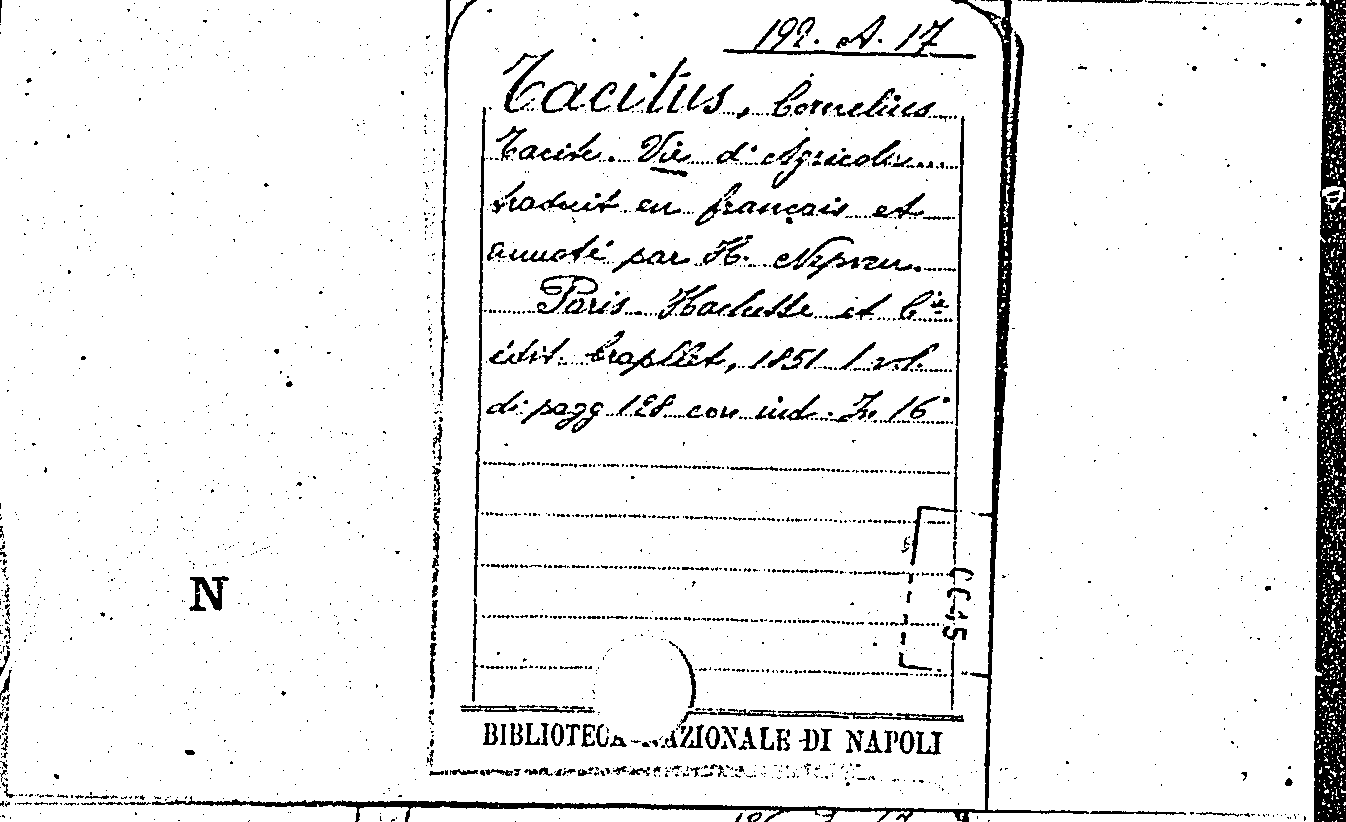 192. A. 17
Tacitus, Cornelius
Tacite. Vie d'Agricola...
traduit en français et
annoté par H. Nepveu.
Paris. Hachette et C.ie
édit. Crapelet, 1851 1 vol.
di pagg 128 con ind. In 16°
N
BIBLIOTECA NAZIONALE DI NAPOLI